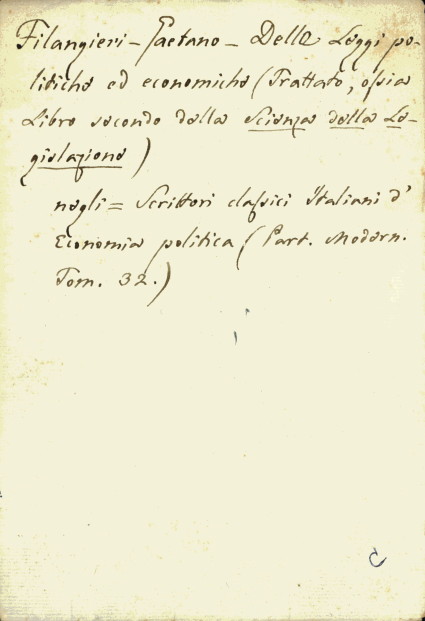 Filangieri - Gaetano - Delle Leggi po-
litiche ed economiche (Trattato, ossia
Libro secondo della Scienza della Le-
gislazione)
negli = Scrittori classici Italiani d'
Economia politica (Part. Modern.
Tom. 32.)
C